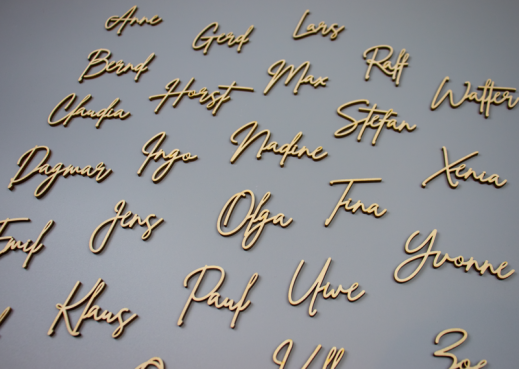 Anne
Gerd
Lars
Bernd
Horst
Max
Ralf
Walter
Claudia
Ingo
Nadine
Stefan
Dagmar
Jens
Olga
Tina
Xenia
Emil
Klaus
Paul
Uwe
Yvonne
Zoe